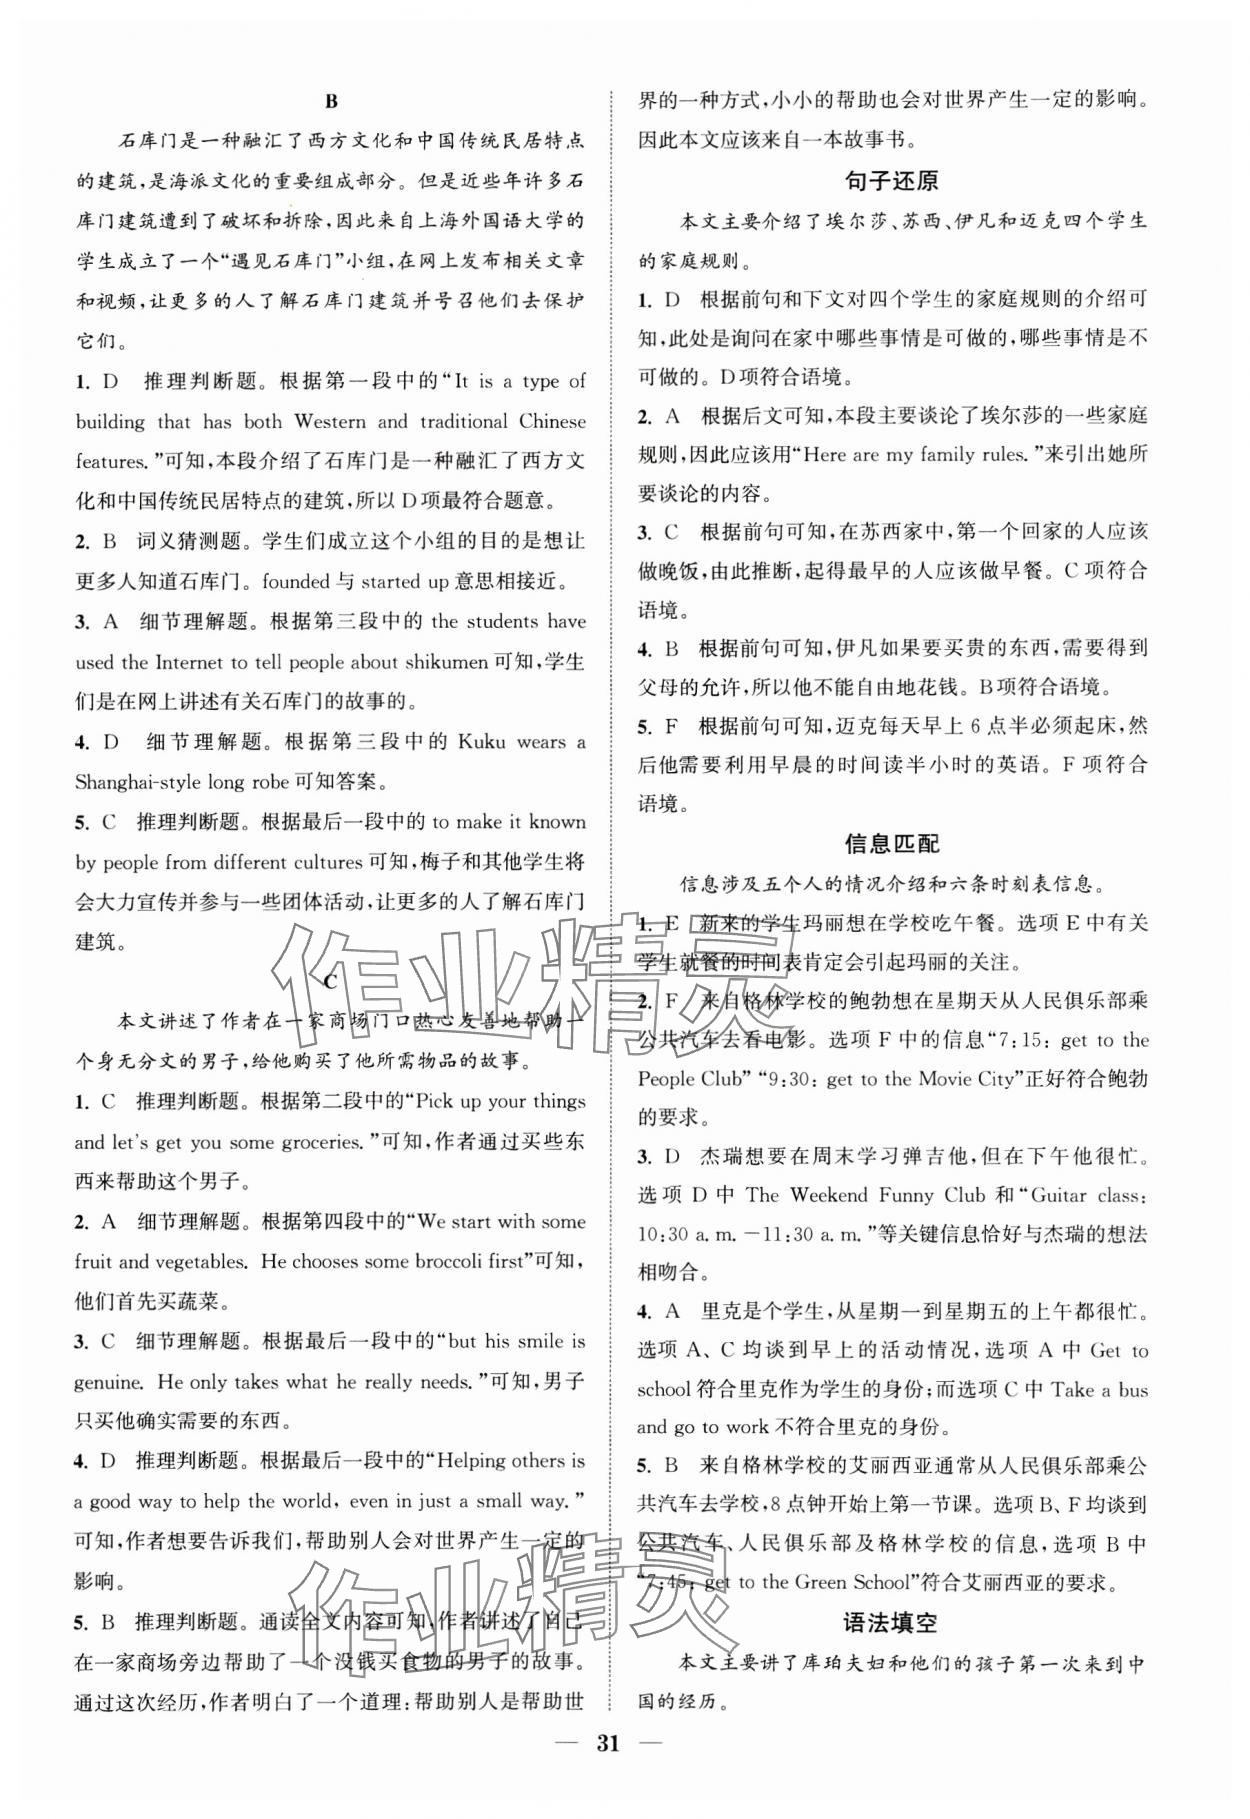 B
石库门是一种融汇了西方文化和中国传统民居特点
的建筑，是海派文化的重要组成部分。但是近些年许多石
库门建筑遭到了破坏和拆除，因此来自上海外国语大学的
学生成立了一个“遇见石库门”小组，在网上发布相关文章
和视频，让更多的人了解石库门建筑并号召他们去保护
它们。
1. D 推理判断题。根据第一段中的“It is a type of
building that has both Western and traditional Chinese
features.”可知，本段介绍了石库门是一种融汇了西方文
化和中国传统民居特点的建筑，所以 D 项最符合题意。
2. B 词义猜测题。学生们成立这个小组的目的是想让
更多人知道石库门。founded 与 started up 意思相接近。
3. A 细节理解题。根据第三段中的 the students have
used the Internet to tell people about shikumen 可知，学生
们是在网上讲述有关石库门的故事的。
4. D 细节理解题。根据第三段中的 Kuku wears a
Shanghai-style long robe 可知答案。
5. C 推理判断题。根据最后一段中的 to make it known
by people from different cultures 可知，梅子和其他学生将
会大力宣传并参与一些团体活动，让更多的人了解石库门
建筑。
C
本文讲述了作者在一家商场门口热心友善地帮助一
个身无分文的男子，给他购买了他所需物品的故事。
1. C 推理判断题。根据第二段中的“Pick up your things
and let's get you some groceries.”可知，作者通过买些东
西来帮助这个男子。
2. A 细节理解题。根据第四段中的“We start with some
fruit and vegetables. He chooses some broccoli first”可知，
他们首先买蔬菜。
3. C 细节理解题。根据最后一段中的“but his smile is
genuine. He only takes what he really needs.”可知，男子
只买他确实需要的东西。
4. D 推理判断题。根据最后一段中的“Helping others is
a good way to help the world, even in just a small way.”
可知，作者想要告诉我们，帮助别人会对世界产生一定的
影响。
5. B 推理判断题。通读全文内容可知，作者讲述了自己
在一家商场旁边帮助了一个没钱买食物的男子的故事。
通过这次经历，作者明白了一个道理：帮助别人是帮助世
界的一种方式，小小的帮助也会对世界产生一定的影响。
因此本文应该来自一本故事书。
句子还原
本文主要介绍了埃尔莎、苏西、伊凡和迈克四个学生
的家庭规则。
1. D 根据前句和下文对四个学生的家庭规则的介绍可
知，此处是询问在家中哪些事情是可做的，哪些事情是不
可做的。D 项符合语境。
2. A 根据后文可知，本段主要谈论了埃尔莎的一些家庭
规则，因此应该用“Here are my family rules.”来引出她所
要谈论的内容。
3. C 根据前句可知，在苏西家中，第一个回家的人应该
做晚饭，由此推断，起得最早的人应该做早餐。C 项符合
语境。
4. B 根据前句可知，伊凡如果要买贵的东西，需要得到
父母的允许，所以他不能自由地花钱。B 项符合语境。
5. F 根据前句可知，迈克每天早上 6 点半必须起床，然
后他需要利用早晨的时间读半小时的英语。F 项符合
语境。
信息匹配
信息涉及五个人的情况介绍和六条时刻表信息。
1. E 新来的学生玛丽想在学校吃午餐。选项 E 中有关
学生就餐的时间表肯定会引起玛丽的关注。
2. F 来自格林学校的鲍勃想在星期天从人民俱乐部乘
公共汽车去看电影。选项 F 中的信息“7:15: get to the
People Club”“9:30: get to the Movie City”正好符合鲍勃
的要求。
3. D 杰瑞想要在周末学习弹吉他，但在下午他很忙。
选项 D 中 The Weekend Funny Club 和“Guitar class:
10:30 a.m.－11:30 a.m.”等关键信息恰好与杰瑞的想法
相吻合。
4. A 里克是个学生，从星期一到星期五的上午都很忙。
选项 A、C 均谈到早上的活动情况，选项 A 中 Get to
school 符合里克作为学生的身份；而选项 C 中 Take a bus
and go to work 不符合里克的身份。
5. B 来自格林学校的艾丽西亚通常从人民俱乐部乘公
共汽车去学校，8 点钟开始上第一节课。选项 B、F 均谈到
公共汽车、人民俱乐部及格林学校的信息，选项 B 中
“7:45: get to the Green School”符合艾丽西亚的要求。
语法填空
本文主要讲了库珀夫妇和他们的孩子第一次来到中
国的经历。
— 31 —
作业精灵
作业精灵